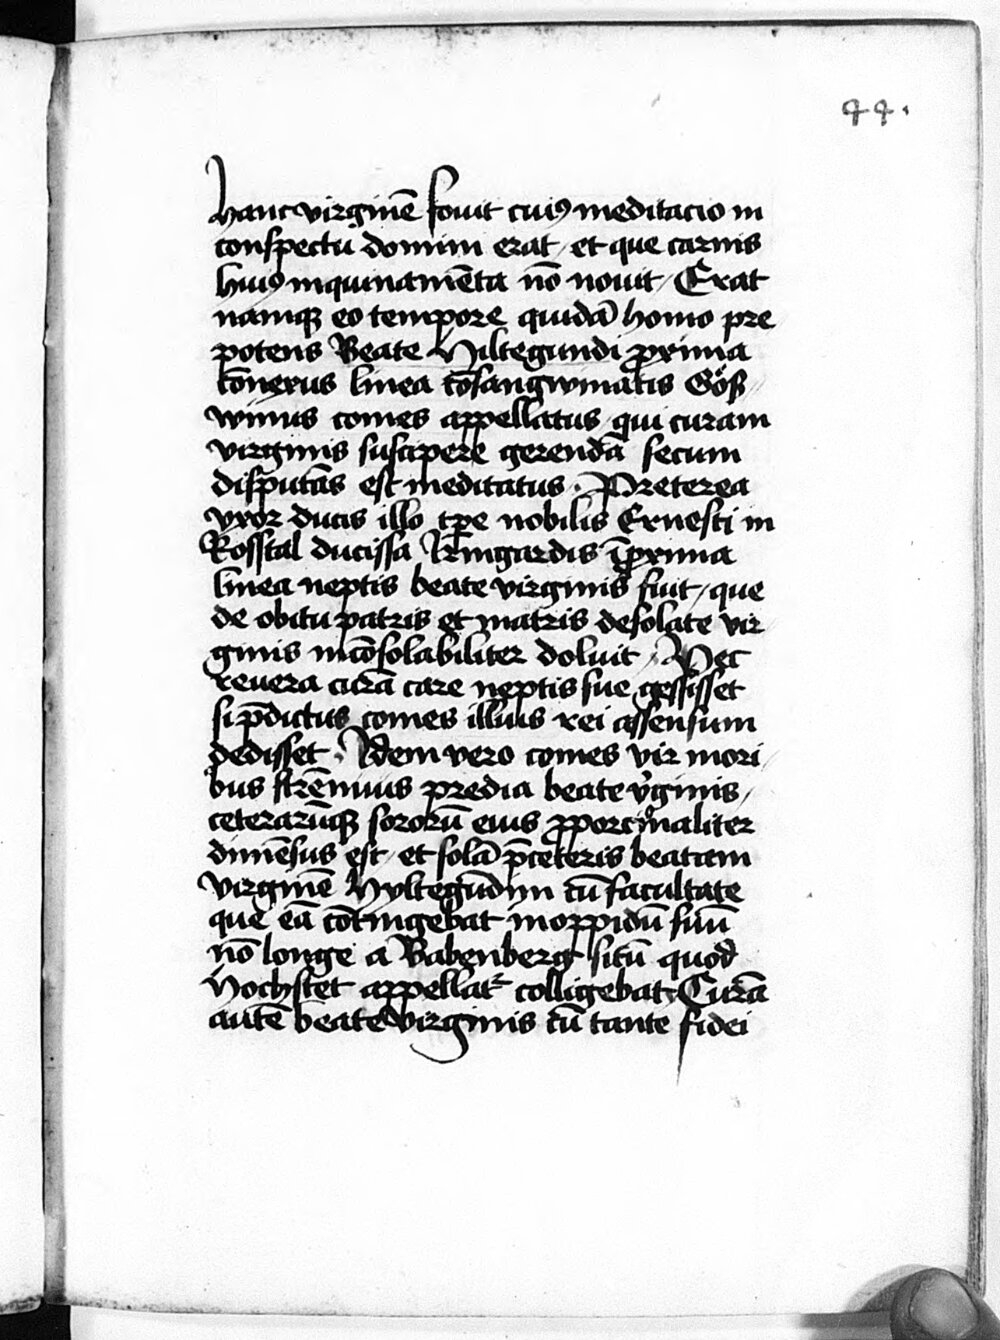 44.
Hanc virginē fovit cuiꝰ meditacio in
conspectu domini erat / et que carnis
huiꝰ inquinamēta nō novit / Erat
namqꝫ eo tempore quidā homo pre
potens Beate Hiltegundi ꝓxima
cōnexus linea cōsangwinitatis Göß //
winus comes appellatus qui curam
virginis suscipere gerendā secum
disputās est meditatus . Preterea
vxor ducis illo tꝑe nobilis Ernesti in
Rosstal ducissa Irmgardis ī ꝓxima
linea neptis beate virginis fuit / que
de obitu patris et matris desolate vir /
ginis incōsolabiliter doluit / Nec
revera curā care neptis sue gessisset
si p̄dictus comes illius rei assensum
dedisset . Idem vero comes vir mori /
bus strēnuus predia beate v̓ginis /
ceterarūqꝫ sororū eius ꝓporcōnaliter
dimēsus est / et solā p̄ ceteris beatam
virginē Hyltegūdim cū facultate
que eā cōtingebat in oppidū suū
nō longe a Babenberg sitū quod
Hochstet appellatᷣ colligebat / Curā
autē beate virginis cū tante fidei